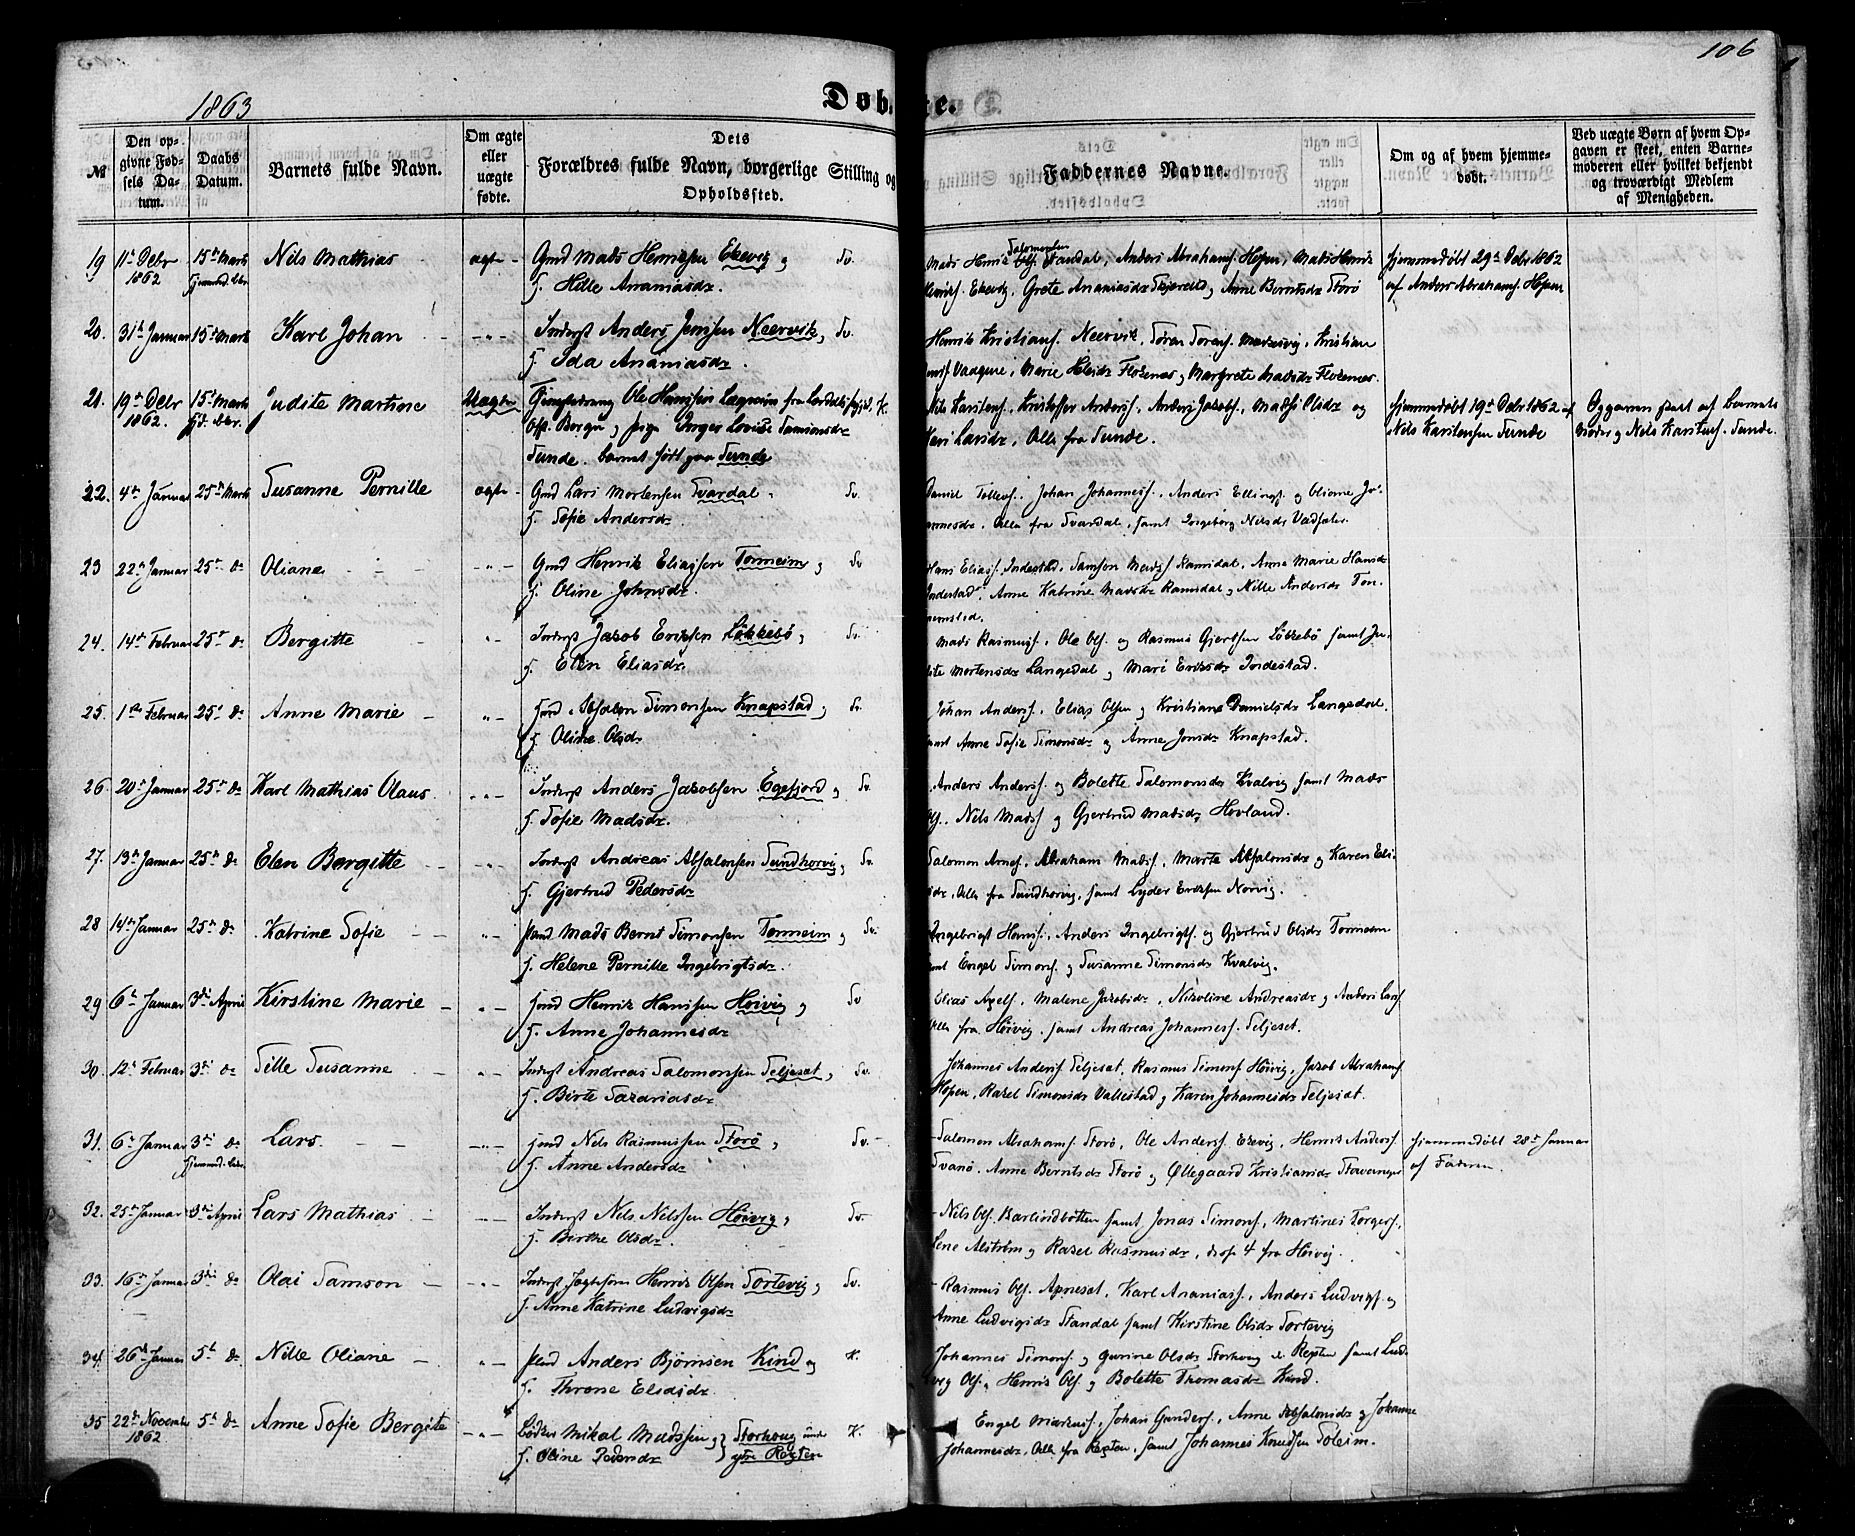 106
1863
Døbte.
№
Den opgivne Fødsels Datum.
Daabs Datum.
Barnets fulde Navn.
Om ægte eller uægte fødte.
Dets Forældres fulde Navn, borgerlige Stilling og Opholdssted.
Faddernes Navne.
Om og af hvem hjemmedøbt.
Ved uægte Børn af hvem Opgaven er skeet, enten Barnemoderen eller hvilket bekjendt og troværdigt Medlem af Menigheden.
19 11te Debr 1862 15de Marts Nils Mathias ægte Gmd Mads Henriksen Ekevig og Sv.
H. Hille Ananiasdr.
Salomonsen
Mads Henrik Standal, Anders Abrahams. Hopen, Mads Henrik
Ekevig, Grete Ananiasdr og Anne Berntsdr Storø
hjemmedøbt 29de Debr 1862
af Anders Abrahams. Hopen
20. 31te Januar 15de Marts Karl Johan - " - Inderst Anders Jenssen Neervik, Sv.
H. Ida Ananiasdr.
Henrik Kristians. Neervik, Søren Sørens. Madsvig, Kristian
Vaagene, Marie Florenæs og Margrete Madsdr Florenæs.
21. 19de Debr 1862. 15de Marts Judite Martine Uægte Ole Hanssen Lægreim fra Lærdal K.
og pige Inger Lovise Samsonsdr
Sunde. barnet født paa Sunde
Nils Karstens., Kristoffer Anders., Anders Jakobs., Madsi Olsdr og
Kari Larsdr, Alle fra Sunde.
hjemmedøbt 19de Debr 1862 af
Nils Karstensen Sunde
Opgaven skeet af barnets
Moder og Nils Karstens. Sunde.
22. 4de Januar 25de Marts Susanne Pernille ægte - Gmd Lars Mortensen Svardal Sv.
H. Sofie Andersdr.
Daniel Tollevs., Johan Johanness., Anders Ellings. og Oliane Johannesdr, Alle fra Svardal, samt Ingeborg Nilsdr Vadsæter.
23 22de Januar 25de do Oliane - " - Gmd Henrik Eliassen Tonneim og Sv
H. Oline Johnsdr.
Hans Elias. Indestad, Samson Mads. Ramsdal, Anne Marie Hansdr
Indestad, Anne Katrine Madsdr Ramsdal og Nille Andersdr
24. 14de Februar 25de do Bergitte " Inderst Jakob Eriksen Løkkebø, Sv.
H. Elen Eliasdr.
Mads Rasmus., Ole Ols. og Rasmus Gjertsen Løkkebø samt Judite Mortensdr Langedal og Mari Eriksdr Indestad.
25. 1ste Februar 25de do Anne Marie " Absalon Simonsen Knapstad og Sv.
H. Oline Olsdr.
Johan Anders., Elias Olsen og Kristiane Danielsdr Langedal
samt Anne Sofie Simonsdr og Anne Jonsdr Knapstad.
26. 20de Januar 25de do Karl Mathias Olaus - " - Inderst Anders Jakobsen Egefjord og Sv.
H. Sofie Madsdr.
Anders Anders. og Bolette Salomonsdr Kvalvig samt Mads
Ols., Nils Mads. og Gjertrud Madsdr Hovland.
27. 13de Januar 25de do Elen Bergitte - " - Inderst Andreas Absalonsen Sundhorvig, Sv.
H. Gjertrud Pedersdr.
Salomon Arnes., Abraham Mads., Marte Absalonsdr og Karen Eliasdr, Alle fra Sundhorvig, samt Lyder Eriksen Norvig.
28 14de Januar 25de do Katrine Sofie " Mads Bernt Simonsen Tonneim og Sv.
H. Helene Pernille Ingebrigtsdr.
Ingebrigt Hans., Anders Ingebrigts. og Gjertrud Olsdr Tonneim
samt Engel Simons. og Susanne Simonsdr Kvalvig.
29 6te Januar 3die April Kirstine Marie - " - Henrik Hanssen Høivig, Sv
H. Anne Johannesdr
Elias Axels., Malene Jakobsdr, Nikoline Andreasdr og Anders Lars.
Alle fra Høivig, samt Andreas Johanness. Seljeset.
30. 12te Februar 3die do Sille Susanne - " - Inderst Andreas Salomonsen Seljeset, Sv.
H. Birte Sakariasdr.
Johannes Anders. Seljeset, Rasmus Simons. Høivig, Jakob Abrahams.
Hopen, Rakel Simonsdr Vallestad og Karen Johannesdr Seljeset.
31. 6te Januar 3die do Lars. - " - Nils Rasmussen Storø, Sv.
H. Anne Andersdr
Salomon Abrahams. Storø, Ole Anders. Ekevig, Henrik Anders.
Svanø, Anne Berntsdr Storø og Øllegaard Kristiansdr Stavanger
hjemmedøbt 28de Januar
af Faderen.
32. 25de Januar 3die April Lars Mathias - " - Inderst Nils Nilssen Høivig, Sv.
H. Birthe Olsdr.
Nils Ols. Barlindbotten samt Jonas Simons., Martines Torgers.,
Lene Alström og Rakel Rasmusdr, disse 4 fra Høivig.
33. 16de Januar 3die do Olai Samson - " - Inderst Henrik Olsen Sortevig, Sv.
H. Anne Katrine Ludvigsdr
Rasmus Ols. Apneset, Karl Ananias., Anders Ludvigs. og
Anne Ludvigsdr Standal samt Kirstine Olsdr Sortevig
34. 26de Januar 5te do Nille Oliane - " - Anders Bjørnsen Kind og K.
H. Throne Eliasdr.
Johannes Simons. og Gurine Olsdr Storhoug samt Ludvig Ols., Henrik Ols. og Bolette Thomasdr Kind.
35 22de November 1862 5te do Anne Sofie Bergite - " - Bødker Mikal Madssen og Storhoug under K.
H. Oline Pedersdr ytre Rexten
Engel Markus., Johan Gunders., Anne Absalonsdr og Johanne
Johannesdr, Alle fra Rexten, samt Johannes Knudsen Soleim.